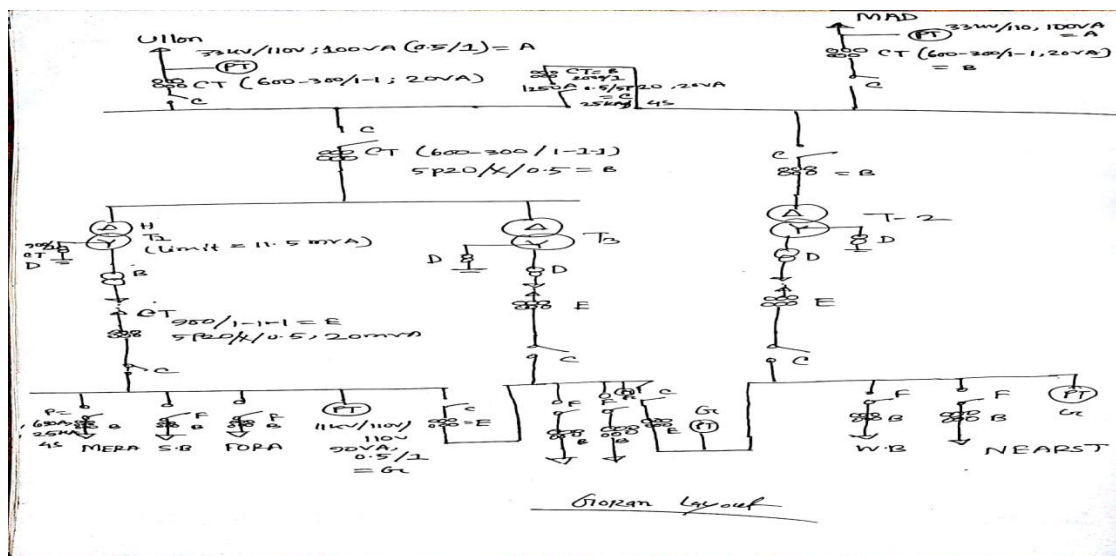 Ullon
33kv/110v; 100VA (0.5/1) = A
PT
CT (600-300/1-1; 20VA)
C
CT = B
1250A 0.5/5P20, 20VA
= C
25KA, 4s
MAD
PT
33kv/110, 100VA
= A
CT (600-300/1-1, 20VA)
= B
C
C
CT (600-300/1-1-1)
5P20/X/0.5 = B
C
= B
H
(Limit = 11.5mVA)
CT
D
B
CT
900/1-1-1 = E
5P20/X/0.5, 20mVA
C
T3
D
D
E
C
T-2
D
D
E
C
B
MERA
F
B
S.B
F
B
FORA
PT
11kv/110v/
110v
90VA,
0.5/1
= G
C
= E
F
B
F
B
C
E
G
PT
F
B
W.B
F
B
NEARST
PT
G
25KA
4s
Goran Layout